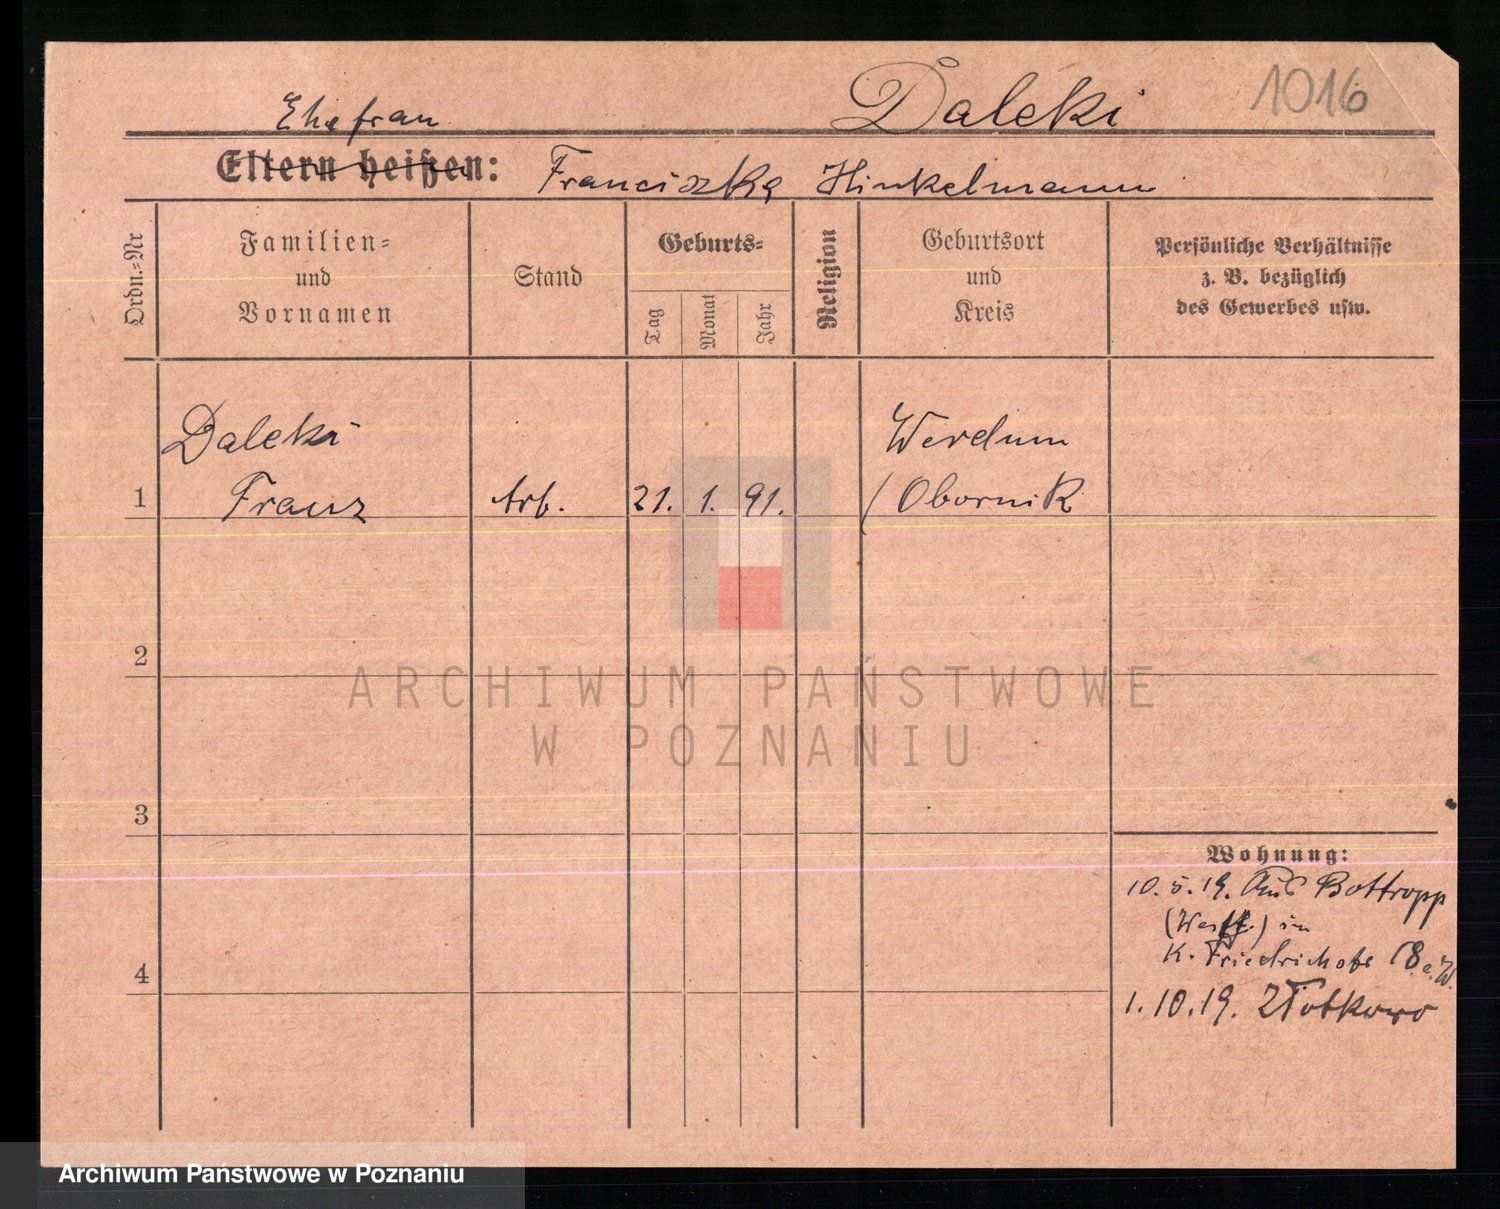 Daleki 1016
Ehefrau
Eltern heißen: Franciszka Hinkelmann
Ordn.=Nr
Familien=
und
Vornamen
Stand
Geburts=
Tag
Monat
Jahr
Religion
Geburtsort
und
Kreis
Persönliche Verhältnisse
z. B. bezüglich
des Gewerbes usw.
Daleki Werdum
1 Franz Arb. 21. 1. 91. (Obornik
2
ARCHIWUM PAŃSTWOWE
W POZNANIU
3
Wohnung:
10. 5. 19. Aus Bottropp
(Westf.) in
K. Friedrichstr 18
4
1. 10. 19. Złotkowo
Archiwum Państwowe w Poznaniu